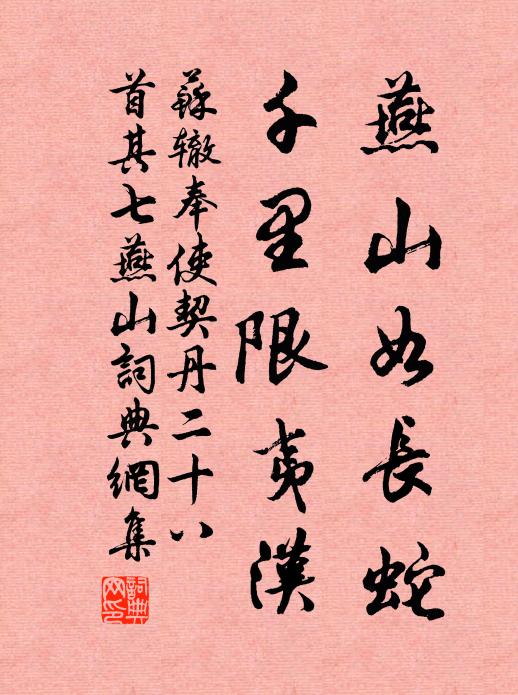 燕山如長蛇
千里限夷漢
蘇辙奉使契丹二十八
首其七燕山詞典網集
詞典网印